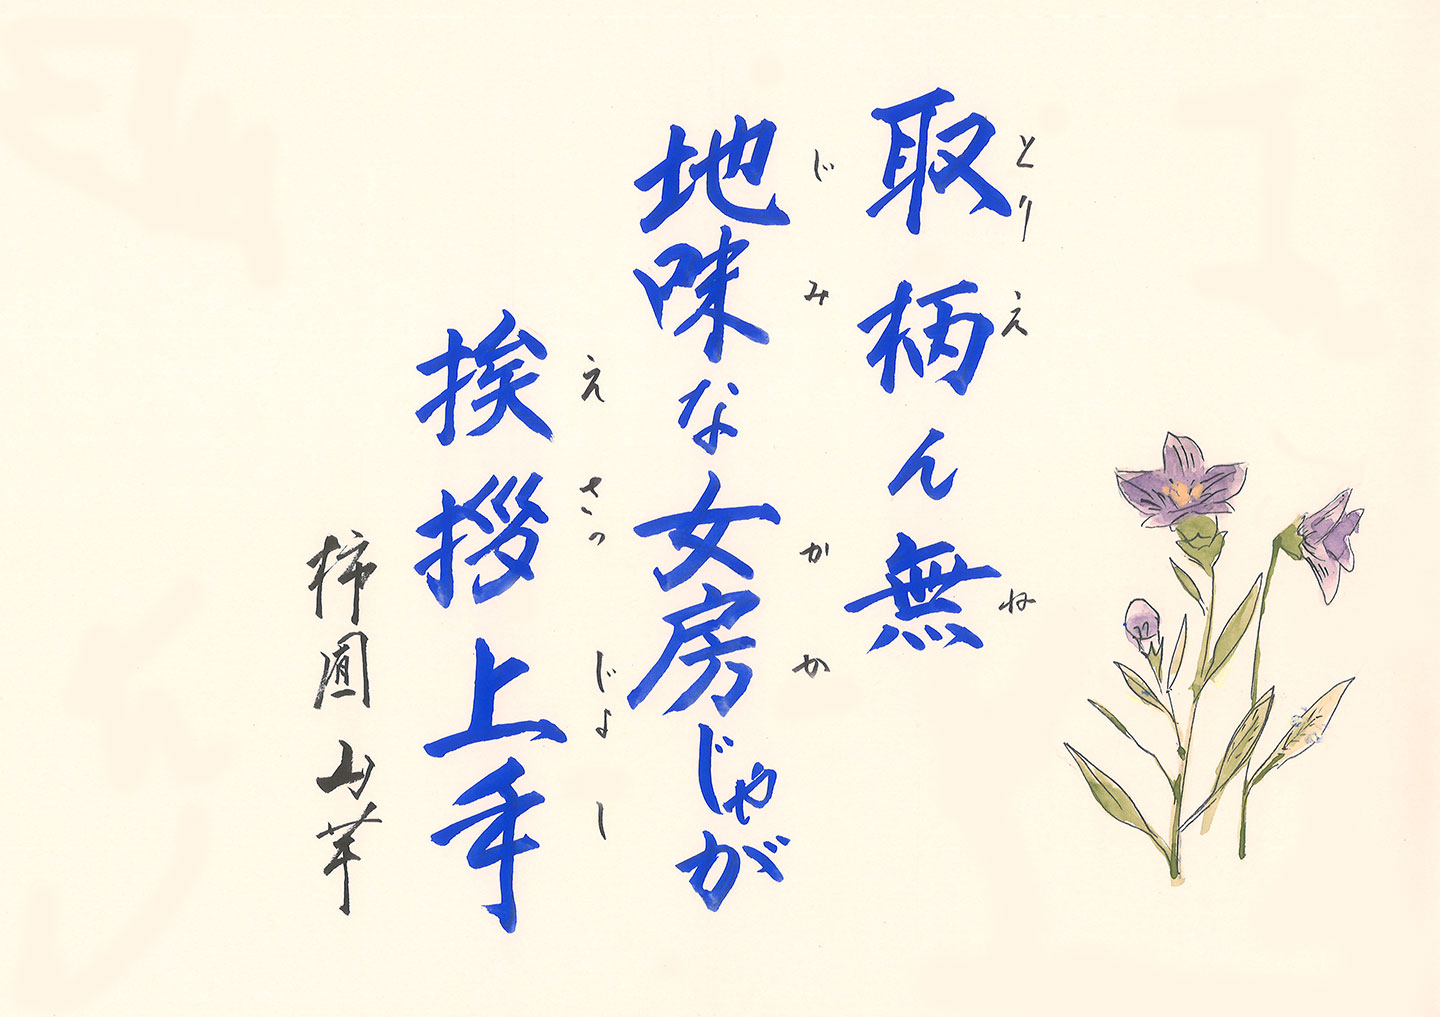 取柄ん無
とりえ ね
地味な女房じゃが
じみ かか
挨拶上手
えさっ じょし
柿圃 山芋